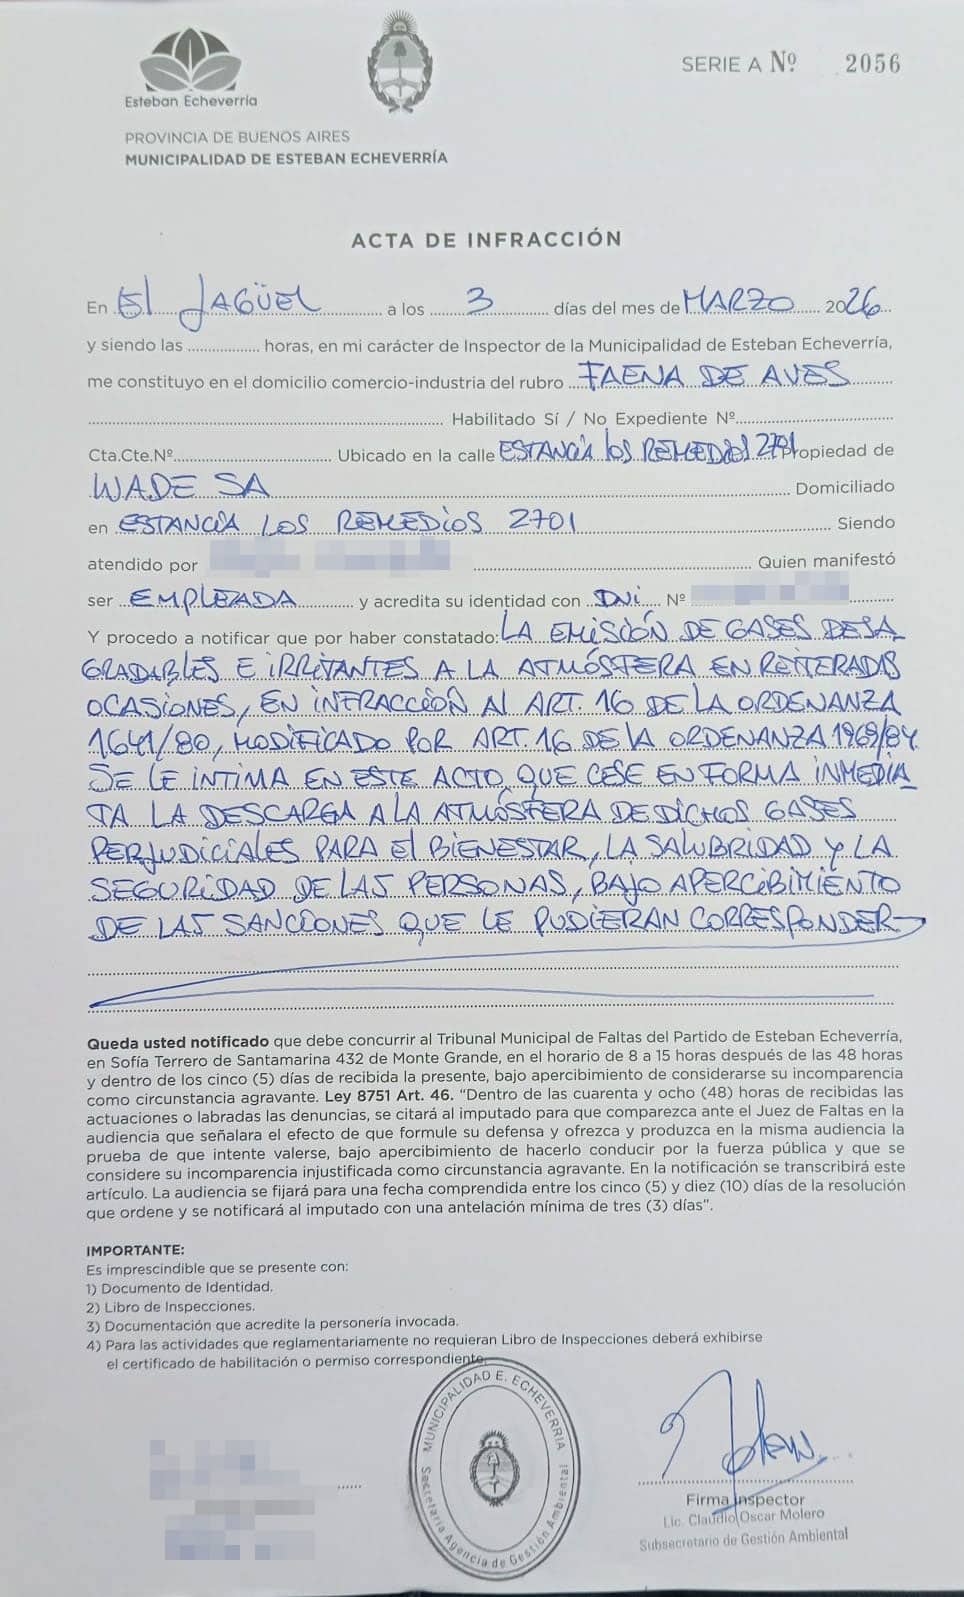 Esteban Echeverría
SERIE A Nº 2056
PROVINCIA DE BUENOS AIRES
MUNICIPALIDAD DE ESTEBAN ECHEVERRÍA
ACTA DE INFRACCIÓN
En El JAGÜEL a los 3 días del mes de MARZO 2026
y siendo las ........ horas, en mi carácter de Inspector de la Municipalidad de Esteban Echeverría,
me constituyo en el domicilio comercio-industria del rubro FAENA DE AVES
........ Habilitado Sí / No Expediente Nº........
Cta.Cte.Nº........ Ubicado en la calle ESTANCIA LOS REMEDIOS 2701 Propiedad de
WADE SA ........ Domiciliado
en ESTANCIA LOS REMEDIOS 2701 ........ Siendo
atendido por ........ Quien manifestó
ser EMPLEADA ........ y acredita su identidad con DNI Nº ........
Y procedo a notificar que por haber constatado: LA EMISIÓN DE GASES DESA
GRADABLES E IRRITANTES A LA ATMÓSFERA EN REITERADAS
OCASIONES, EN INFRACCIÓN AL ART. 16 DE LA ORDENANZA
1641/80, MODIFICADO POR ART. 16 DE LA ORDENANZA 1969/84.
SE LE INTIMA EN ESTE ACTO, QUE CESE EN FORMA INMEDIA
TA LA DESCARGA A LA ATMÓSFERA DE DICHOS GASES
PERJUDICIALES PARA El BIENESTAR, LA SALUBRIDAD Y LA
SEGURIDAD DE LAS PERSONAS, BAJO APERCIBIMIENTO
DE LAS SANCIONES QUE LE PUDIERAN CORRESPONDER
Queda usted notificado que debe concurrir al Tribunal Municipal de Faltas del Partido de Esteban Echeverría,
en Sofía Terrero de Santamarina 432 de Monte Grande, en el horario de 8 a 15 horas después de las 48 horas
y dentro de los cinco (5) días de recibida la presente, bajo apercibimiento de considerarse su incomparencia
como circunstancia agravante. Ley 8751 Art. 46. "Dentro de las cuarenta y ocho (48) horas de recibidas las
actuaciones o labradas las denuncias, se citará al imputado para que comparezca ante el Juez de Faltas en la
audiencia que señalara el efecto de que formule su defensa y ofrezca y produzca en la misma audiencia la
prueba de que intente valerse, bajo apercibimiento de hacerlo conducir por la fuerza pública y que se
considere su incomparencia injustificada como circunstancia agravante. En la notificación se transcribirá este
artículo. La audiencia se fijará para una fecha comprendida entre los cinco (5) y diez (10) días de la resolución
que ordene y se notificará al imputado con una antelación mínima de tres (3) días".
IMPORTANTE:
Es imprescindible que se presente con:
1) Documento de Identidad.
2) Libro de Inspecciones.
3) Documentación que acredite la personería invocada.
4) Para las actividades que reglamentariamente no requieran Libro de Inspecciones deberá exhibirse
el certificado de habilitación o permiso correspondiente.
MUNICIPALIDAD E. ECHEVERRIA
Secretaria Agencia de Gestión Ambiental
Firma Inspector
Lic. Claudio Oscar Molero
Subsecretario de Gestión Ambiental